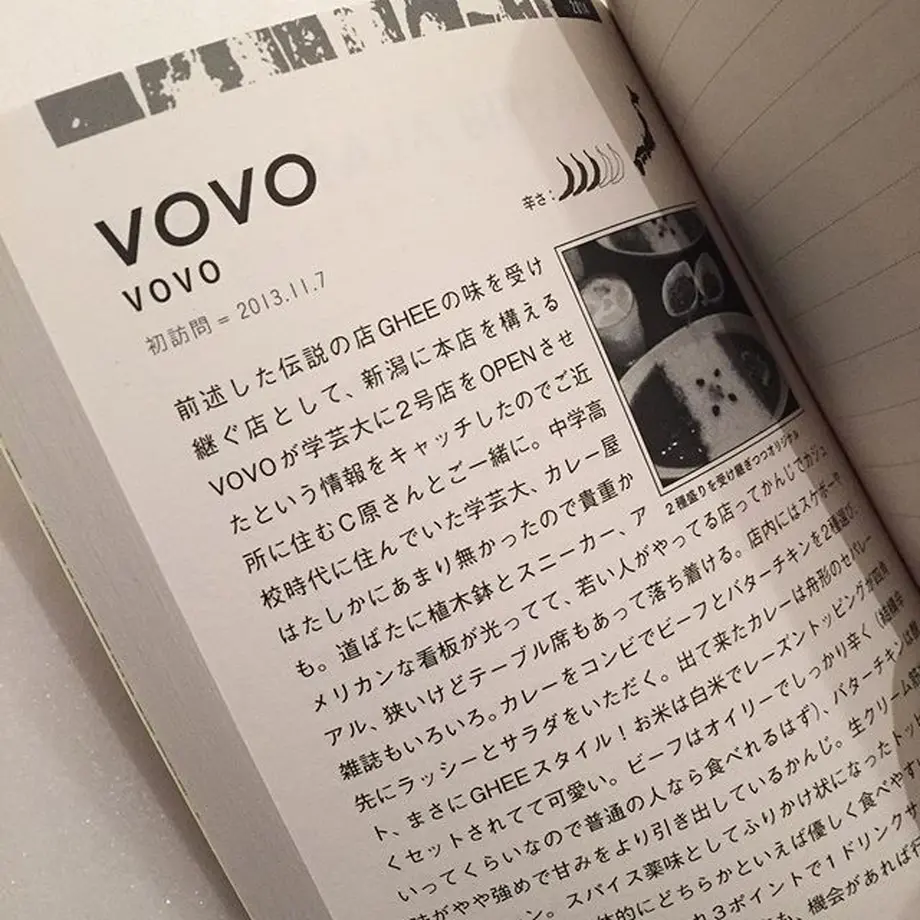 VOVO
VOVO
初訪問 = 2013.11.7
辛さ:
2種盛りを受け継ぎつつオリジナル
前述した伝説の店GHEEの味を受け
継ぐ店として、新潟に本店を構える
VOVOが学芸大に2号店をOPENさせ
たという情報をキャッチしたのでご近
所に住むC原さんとご一緒に。中学高
校時代に住んでいた学芸大、カレー屋
はたしかにあまり無かったので貴重か
も。道ばたに植木鉢とスニーカー、ア
メリカンな看板が光ってて、若い人がやってる店ってかんじでカジュ
アル、狭いけどテーブル席もあって落ち着ける。店内にはスケボーや
雑誌もいろいろ。カレーをコンビでビーフとバターチキンを2種選び、
先にラッシーとサラダをいただく。出て来たカレーは舟形のセパレー
ト、まさにGHEEスタイル!お米は白米でレーズントッピングが四角
くセットされてて可愛い。ビーフはオイリーでしっかり辛く(結構辛
いってくらいなので普通の人なら食べれるはず)、バターチキンは
がやや強めで甘みをより引き出しているかんじ。生クリーム
ン。スパイス薬味としてふりかけ状になったトッ
体的にどちらかといえば優しく食べやす
3ポイントで1ドリンクサ
も、機会があれば